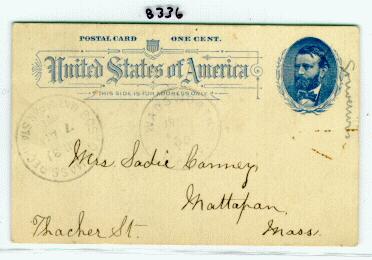 8336
POSTAL CARD ONE CENT.
United States of America
THIS SIDE IS FOR ADDRESS ONLY.
Mrs. Sadie Canney,
Mattapan,
Thacher St. Mass.